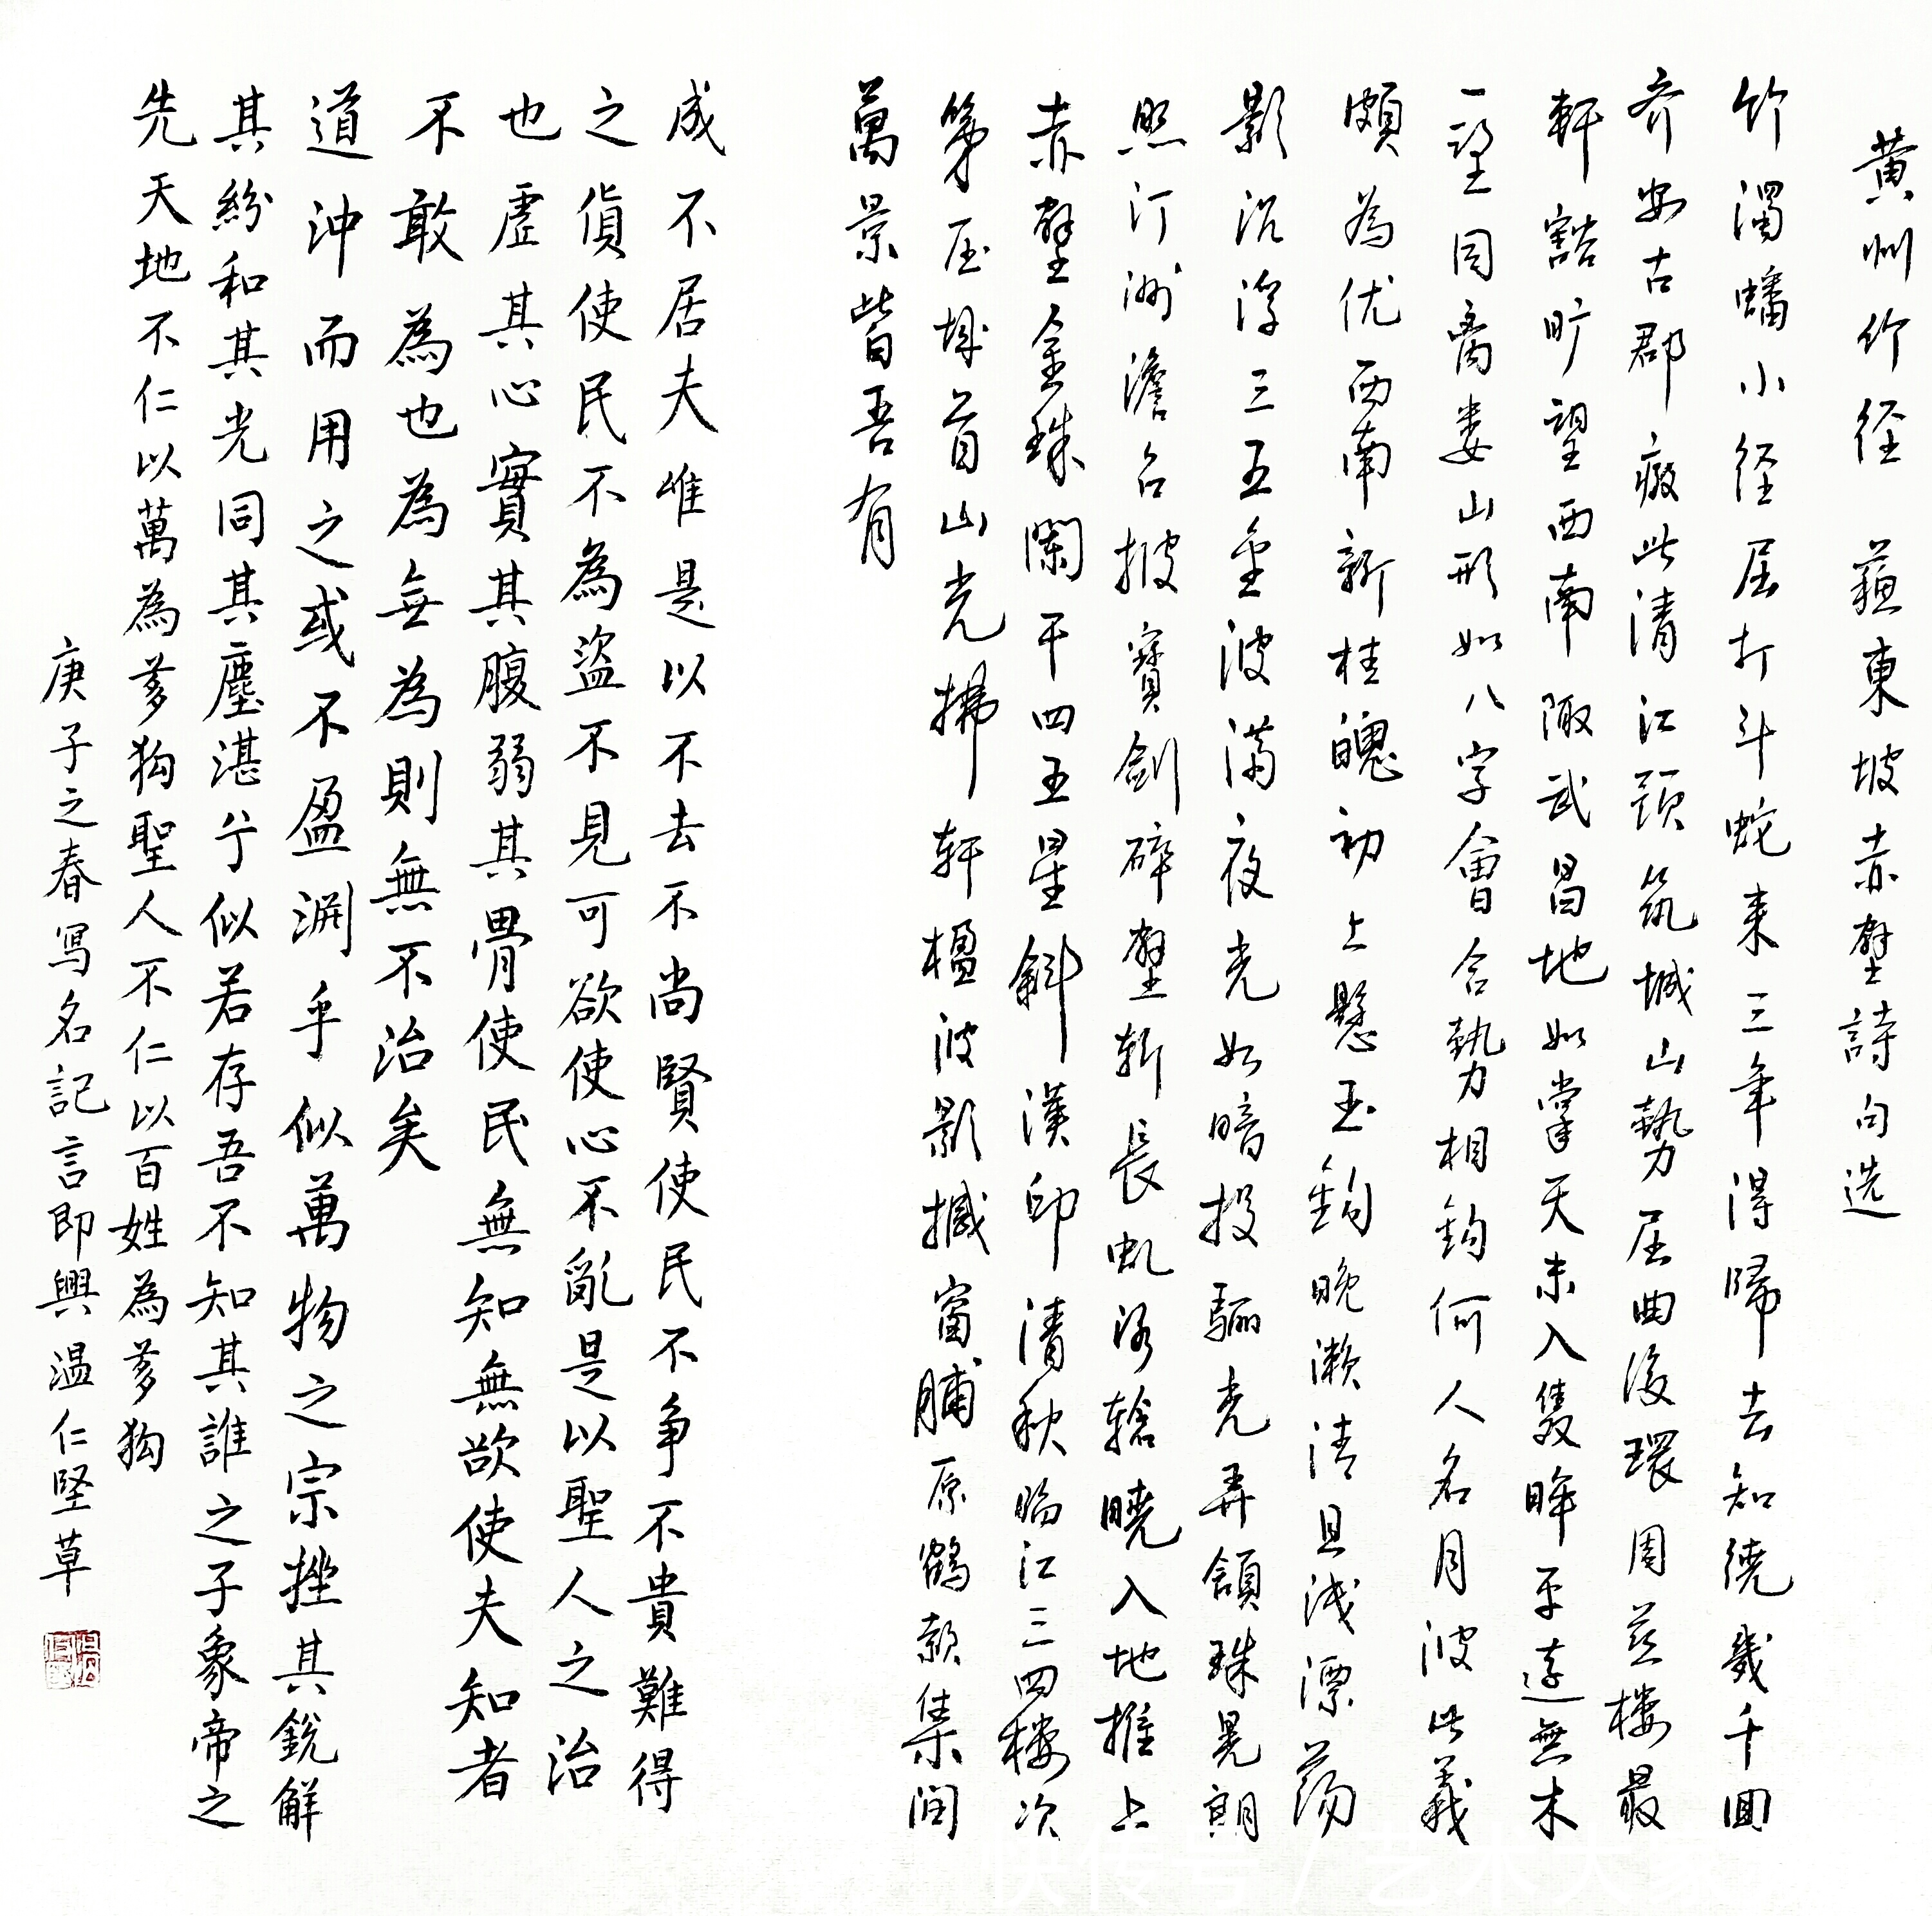 黄州竹径 蘓東坡赤壁詩句选
竹濁蟠小径屈打斗蛇来三年得歸去知繞幾千囬
齐安古郡癈此清江頭筑城山勢屈曲後環周茲楼最
軒豁旷望西南陬武昌地如掌天末入隻眸平遠無木
一望同商娄山形如八字會合勢相鈎何人名月波此義
頗為优西南新桂魄初上懸玉鈎晚濑清且浅漂荡
影沉浮三五金波满夜光如暗投骊光弄頷珠晃朗
照汀洲澹台披寶劍碎壁斬長虬鎗曉入地推上
赤壁金珠闌干四五星斜漢印清秋临江三四楼次
第压城首山光拂軒楹波影撼窗牖原鶴集润
萬景皆吾有
成不居夫唯是以不去不尚賢使民不争不貴難得
之貨使民不為盜不見可欲使心不亂是以聖人之治
也虛其心實其腹弱其骨使民無知無欲使夫知者
不敢為也為無為則無不治矣
道沖而用之或不盈渊乎似萬物之宗挫其銳解
其紛和其光同其塵湛兮似若存吾不知其誰之子象帝之
先天地不仁以萬為芻狗聖人不仁以百姓為芻狗
庚子之春寫名記言即興温仁堅草